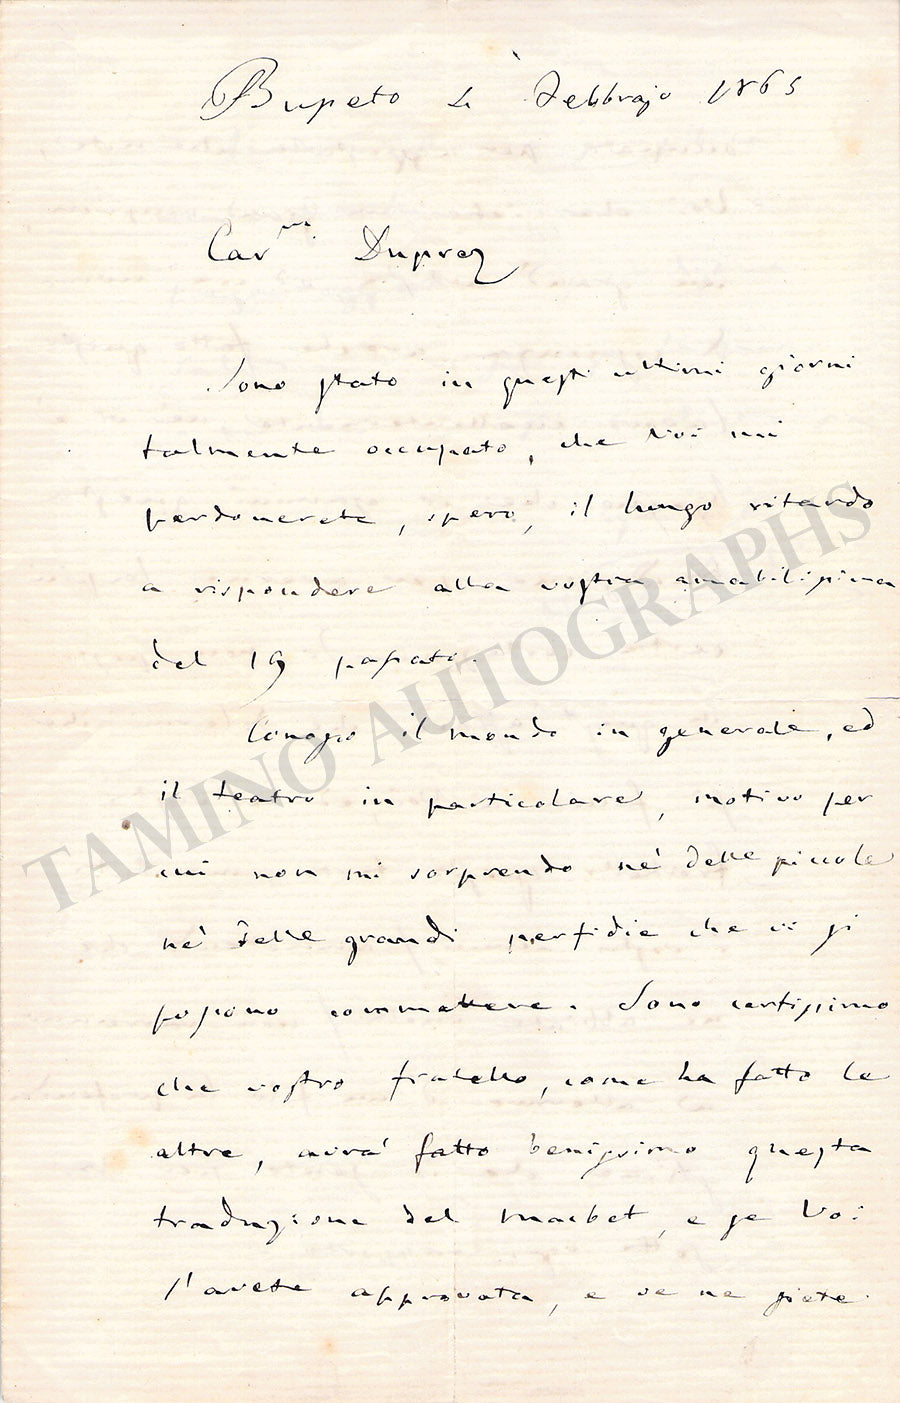 Busseto 4 Febbrajo 1865
Car.mo Duprez
Sono stato in questi ultimi giorni
talmente occupato, che Voi mi
perdonerete, spero, il lungo ritardo
a rispondere alla vostra amabilissima
del 19 passato.
Conosco il mondo in generale, ed
il teatro in particolare, motivo per
cui non mi sorprendo nè delle piccole
nè delle grandi perfidie che vi si
possono commettere. Sono certissimo
che vostro fratello, come ha fatto le
altre, avrà fatto benissimo questa
traduzione del Macbet, e se Voi
l'avete approvata, e ve ne siete
TAMINO AUTOGRAPHS